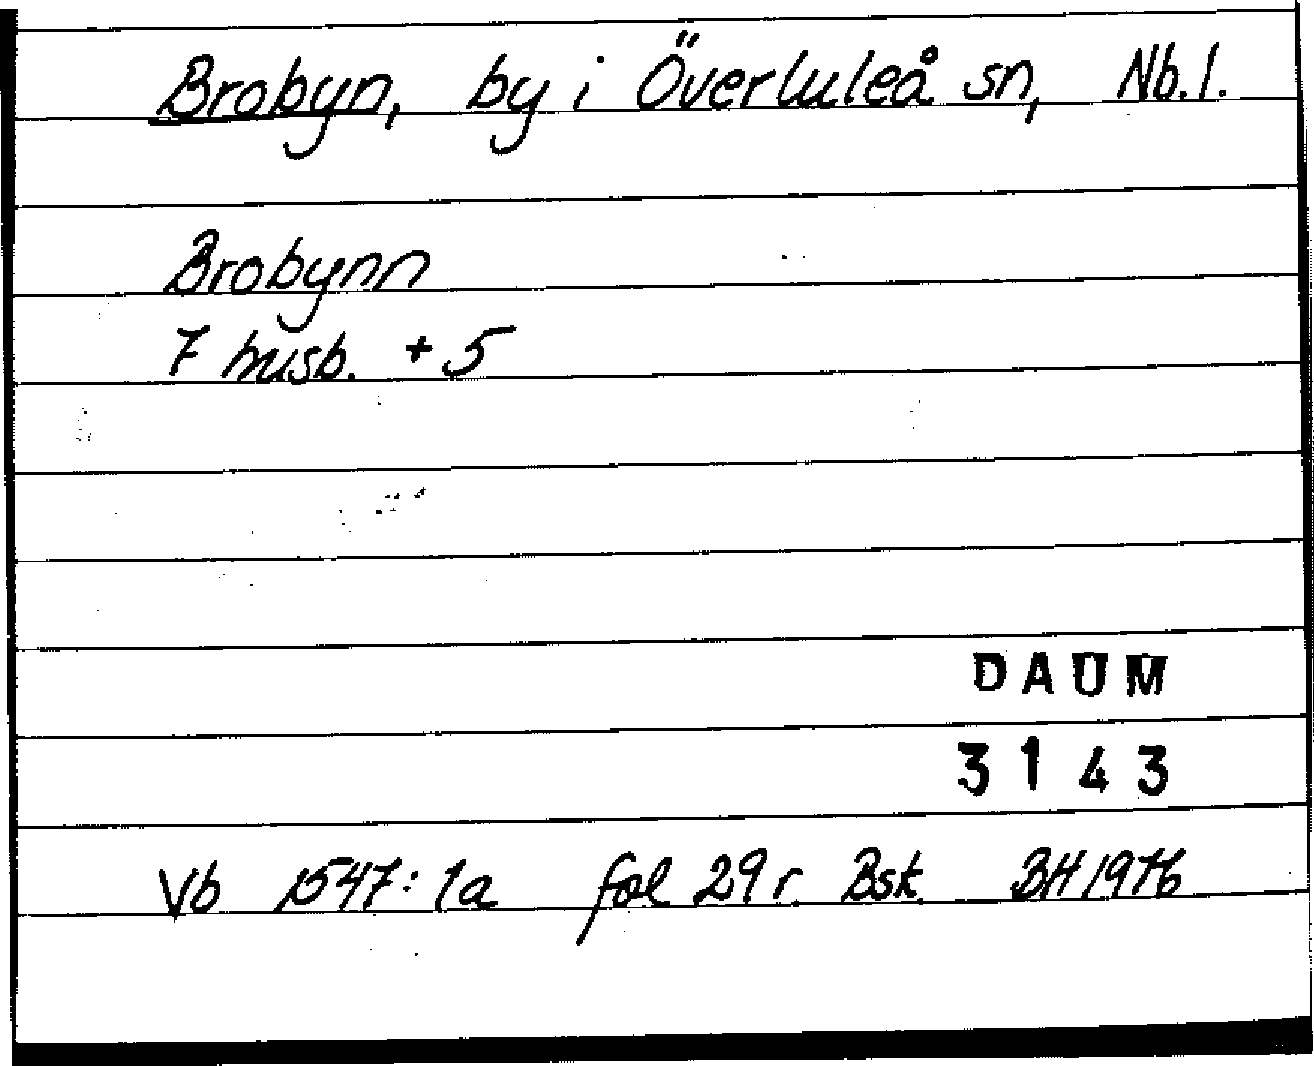 Brobyn, by i Överluleå sn, Nb. l.
Brobynn
7 husb. + 5
DAUM
3143
Vb 1547:1a fol 29 r. Bsk BH 1976